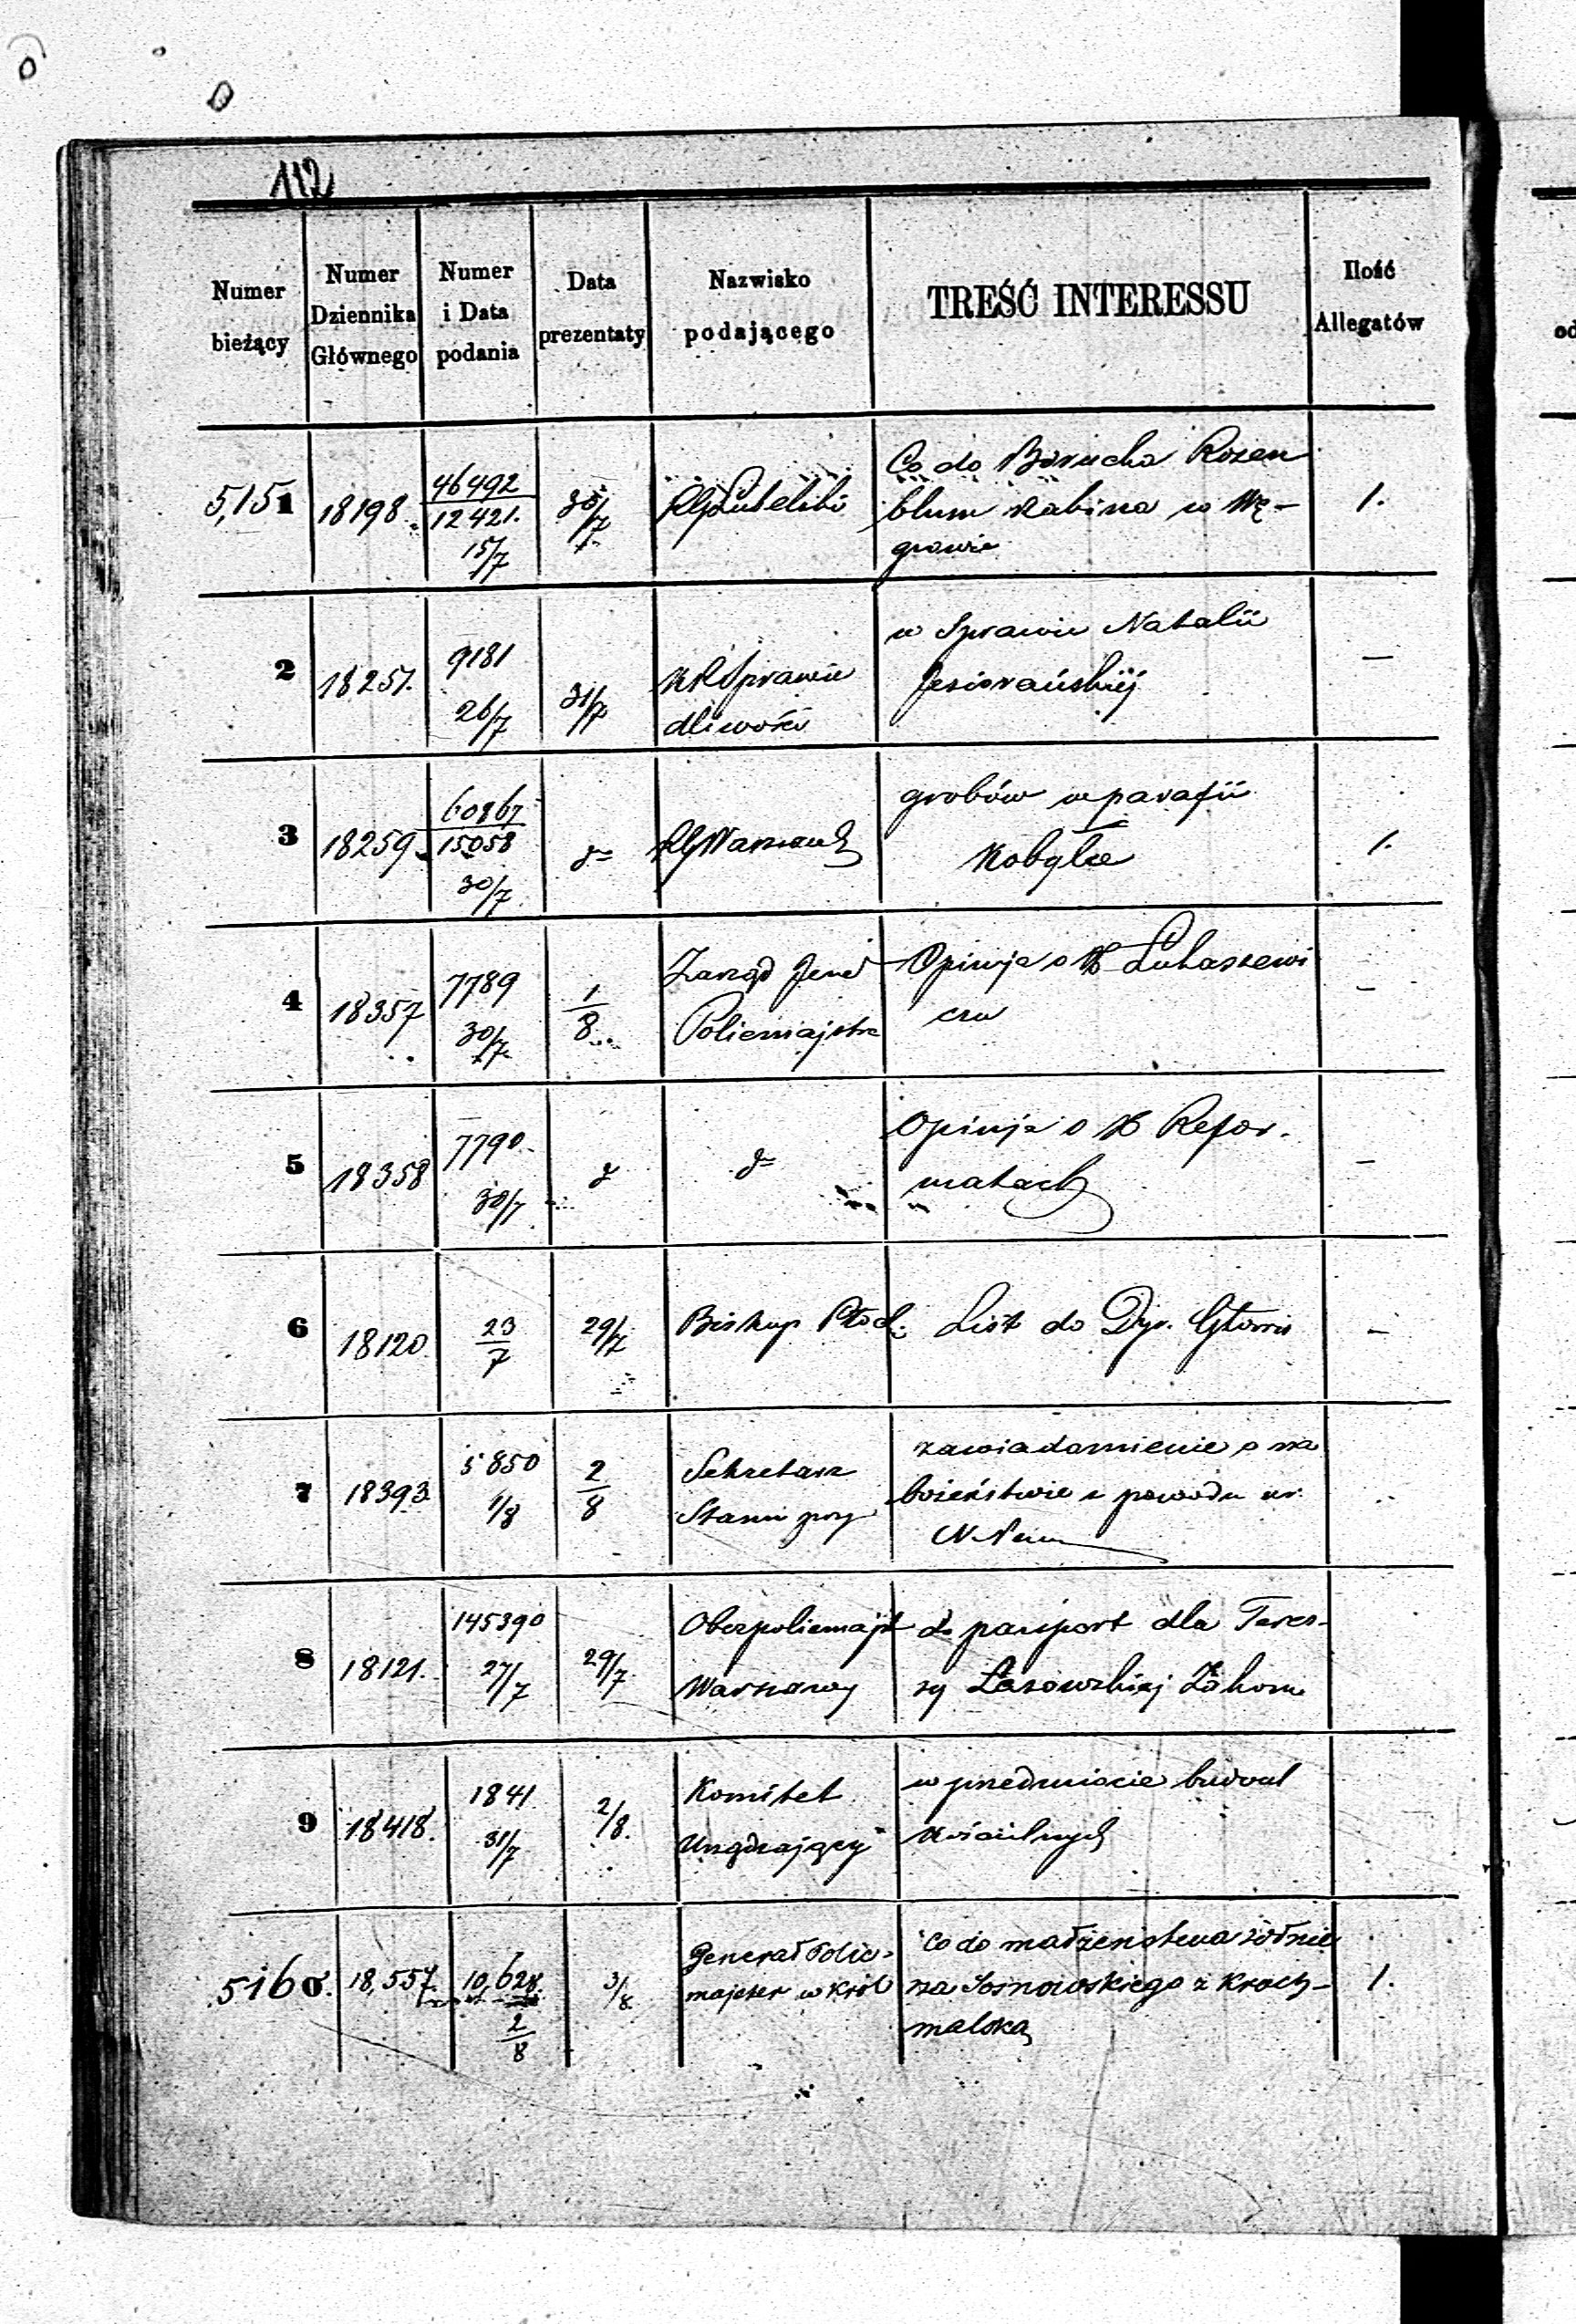 112
Numer bieżący
Numer Dziennika Głównego
Numer i Data podania
Data prezentaty
Nazwisko podającego
TREŚĆ INTERESSU
Ilość Allegatów
5,151
18198
46492
12421.
15/7
30/7
RGLubelski
Co do Borucha Rozen
blum Rabina w Wę-
growie
1.
2
18251.
9181
26/7
31/7
KRSprawie
dliwości
w Sprawie Natalii
Jeziorańskiéj
—
3
18259
60867
15058
30/7
RGWarszaws
grobów w parafii
Kobyłce
1.
4
18357
7789
30/7
1/8
Zarząd Jene
Policmajstra
Opinija o X Łukaszewi
czu
-
5
18358
7790
30/7
Opinija o X Refor-
matach
-
6
18120
23/7
29/7
Biskup Płock:
List do Dyr. Główn
-
7
18393
5850
1/8
2/8
Sekretarz
Stanu przy
zawiadomienie o na
bożeństwie z powodu ur.
8
18121.
145390
27/7
29/7
Oberpolicmajst
Warszawy
do paszport dla Teres-
sy Łasowskiej Zakon
9
18418.
1841
31/7
2/8.
Komitet
Urządzający
w przedmiocie budowl
Kościelnych
5160.
18,557
10,628
2/8
3/8
Generał Polic-
majster w Król
co do małżeństwa żołnie
rza Sosnowskiego z Kroch-
malską
1.